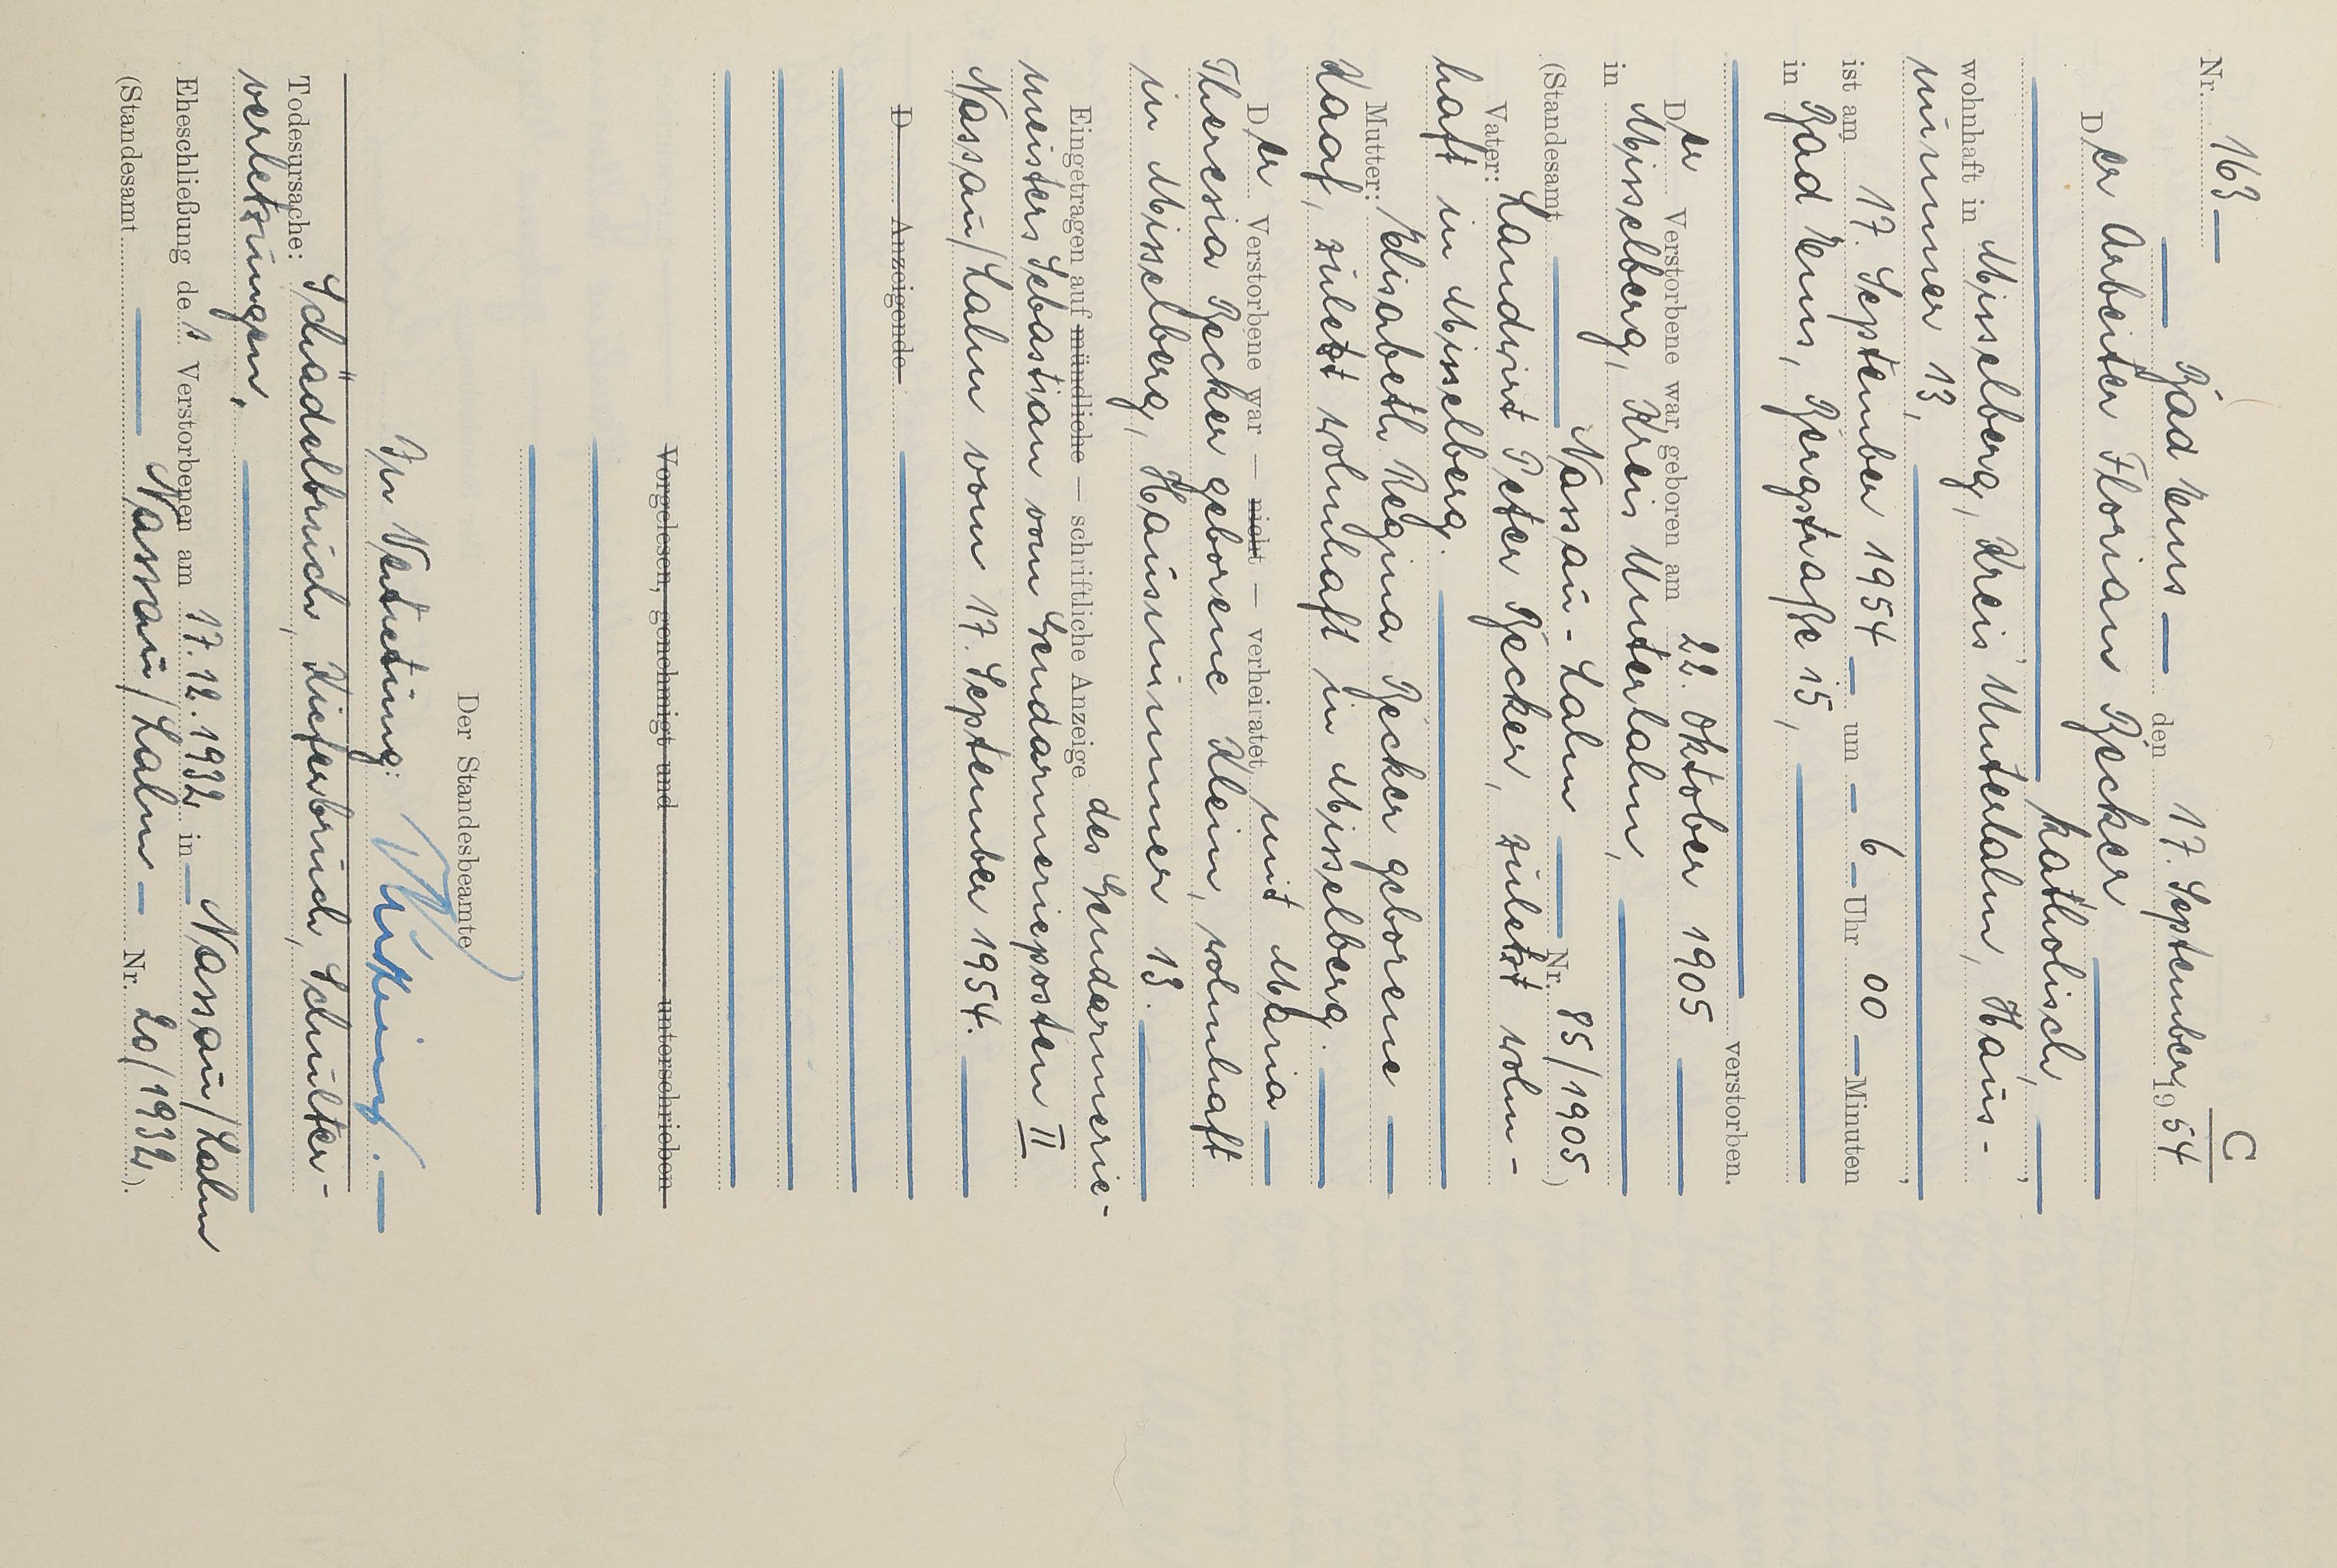 C
Nr. 163
Bad Ems den 17. September 1954
Der Arbeiter Florian Becker
katholisch,
wohnhaft in Misselberg, Kreis Unterlahn, Haus-
nummer 13,
ist am 17. September 1954 um 6 Uhr 00 Minuten
in Bad Ems, Bergstraße 15,
verstorben.
Der Verstorbene war geboren am 22. Oktober 1905
in Misselberg, Kreis Unterlahn,
(Standesamt Nassau-Lahn Nr. 85/1905)
Vater: Landwirt Peter Becker, zuletzt wohn-
haft in Misselberg.
Mutter: Elisabeth Regina Becker geborene
Kaaf, zuletzt wohnhaft in Misselberg.
Der Verstorbene war — nicht — verheiratet mit Maria
Theresia Becker geborene Klein, wohnhaft
in Misselberg, Hausnummer 13.
Eingetragen auf mündliche — schriftliche Anzeige des Gendarmerie-
meisters Sebastian vom Gendarmerieposten II
Nassau/Lahn vom 17. September 1954.
D Anzeigende
Vorgelesen, genehmigt und unterschrieben
Der Standesbeamte
In Vertretung:
Todesursache: Schädelbruch, Kieferbruch, Schulter-
verletzungen.
Eheschließung des Verstorbenen am 17.12.1932 in Nassau/Lahn
(Standesamt Nassau/Lahn Nr. 20/1932).